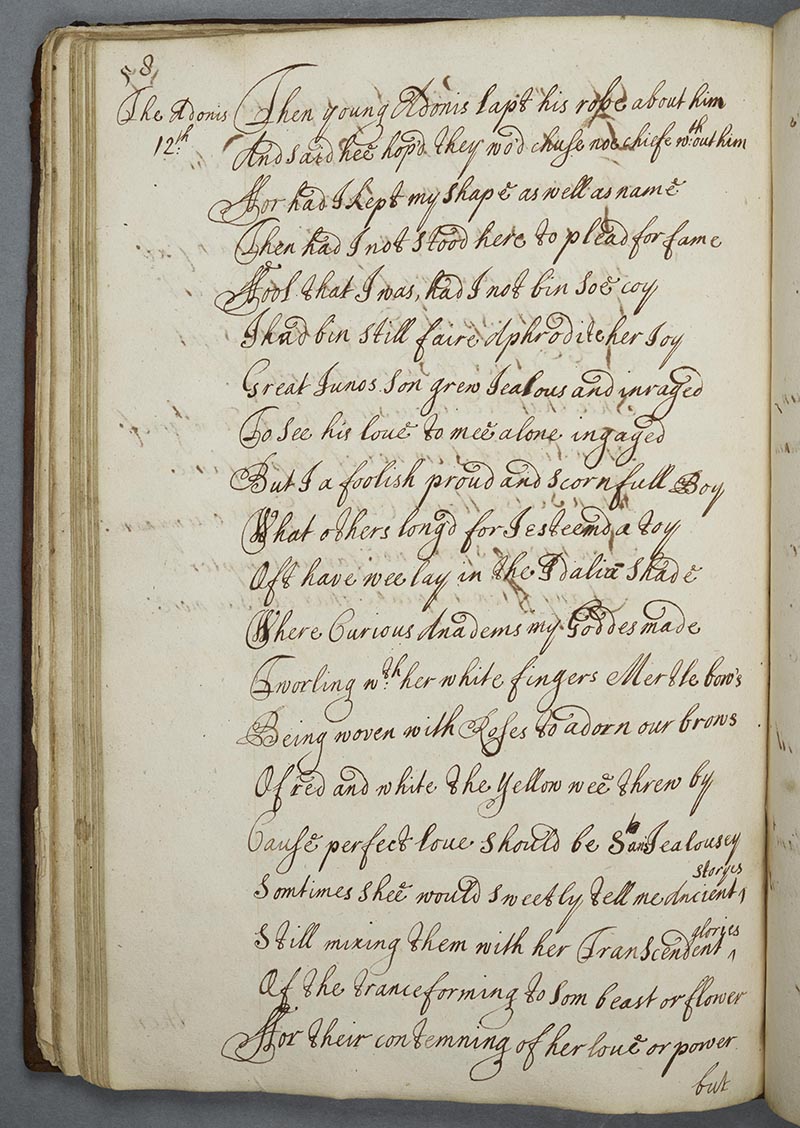 58
The Adonis
12th
Then young Adonis lapt his robe about him
And said hee hop'd they wo'd chuse noe chiefe wth:out him
Ffor had I kept my shape as well as name
Then had I not stood here to plead for fame
Ffool that I was, had I not bin soe coy
I had bin still faire Aphrodite her Joy
Great Junos Son grew Jealous and inraged
To see his love to mee alone ingaged
But I a foolish proud and scornfull Boy
What others long'd for I esteemd a toy
Oft have wee lay in the Idalia Shade
Where Curious Anadems my Goddes made
Tworling wth: her white fingers Mertle bow's
Being woven with Roses to adorn our brows
Of red and white the Yellow wee threw by
Cause perfect love should be Sans Jealousey
Somtimes shee would sweetly tell me Ancient storyes
Still mixing them with her Transcendent glories
Of the tranceforming to som beast or flower
Ffor their contemning of her love or power
but